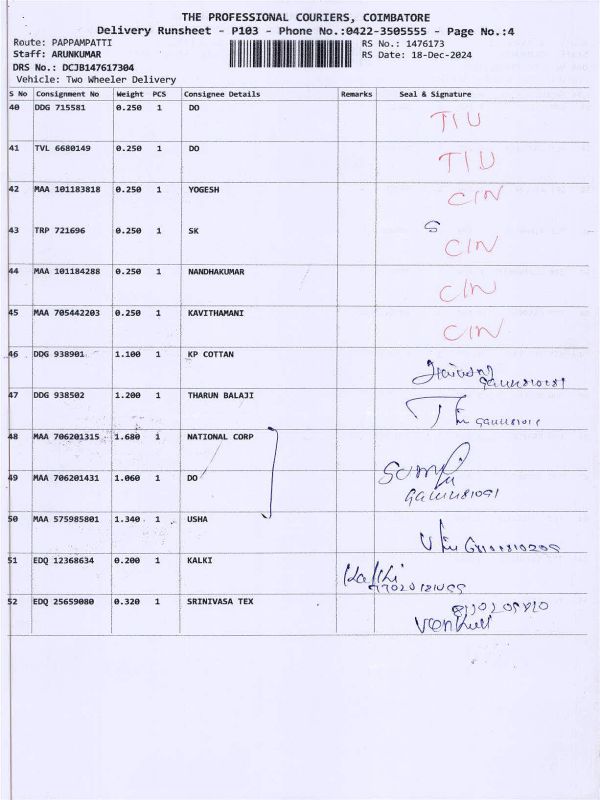 THE PROFESSIONAL COURIERS, COIMBATORE
Delivery Runsheet - P103 - Phone No.:0422-3505555 - Page No.:4
Route: PAPPAMPATTI RS No.: 1476173
Staff: ARUNKUMAR RS Date: 18-Dec-2024
DRS No.: DCJB147617304
Vehicle: Two Wheeler Delivery
S No Consignment No Weight PCS Consignee Details Remarks Seal & Signature
40 DDG 715581 0.250 1 DO TIU
41 TVL 6680149 0.250 1 DO TIU
42 MAA 101183818 0.250 1 YOGESH CIN
43 TRP 721696 0.250 1 SK S CIN
44 MAA 101184288 0.250 1 NANDHAKUMAR CIN
45 MAA 705442203 0.250 1 KAVITHAMANI CIN
46 DDG 938901 1.100 1 KP COTTAN
47 DDG 938502 1.200 1 THARUN BALAJI
48 MAA 706201315 1.680 1 NATIONAL CORP
49 MAA 706201431 1.060 1 DO
50 MAA 575985801 1.340 1 USHA
51 EDQ 12368634 0.200 1 KALKI Kalki
52 EDQ 25659080 0.320 1 SRINIVASA TEX